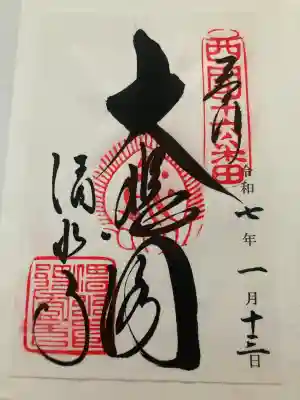 西国十六番
奉拝
令和七年一月十三日
大悲閣
清水寺